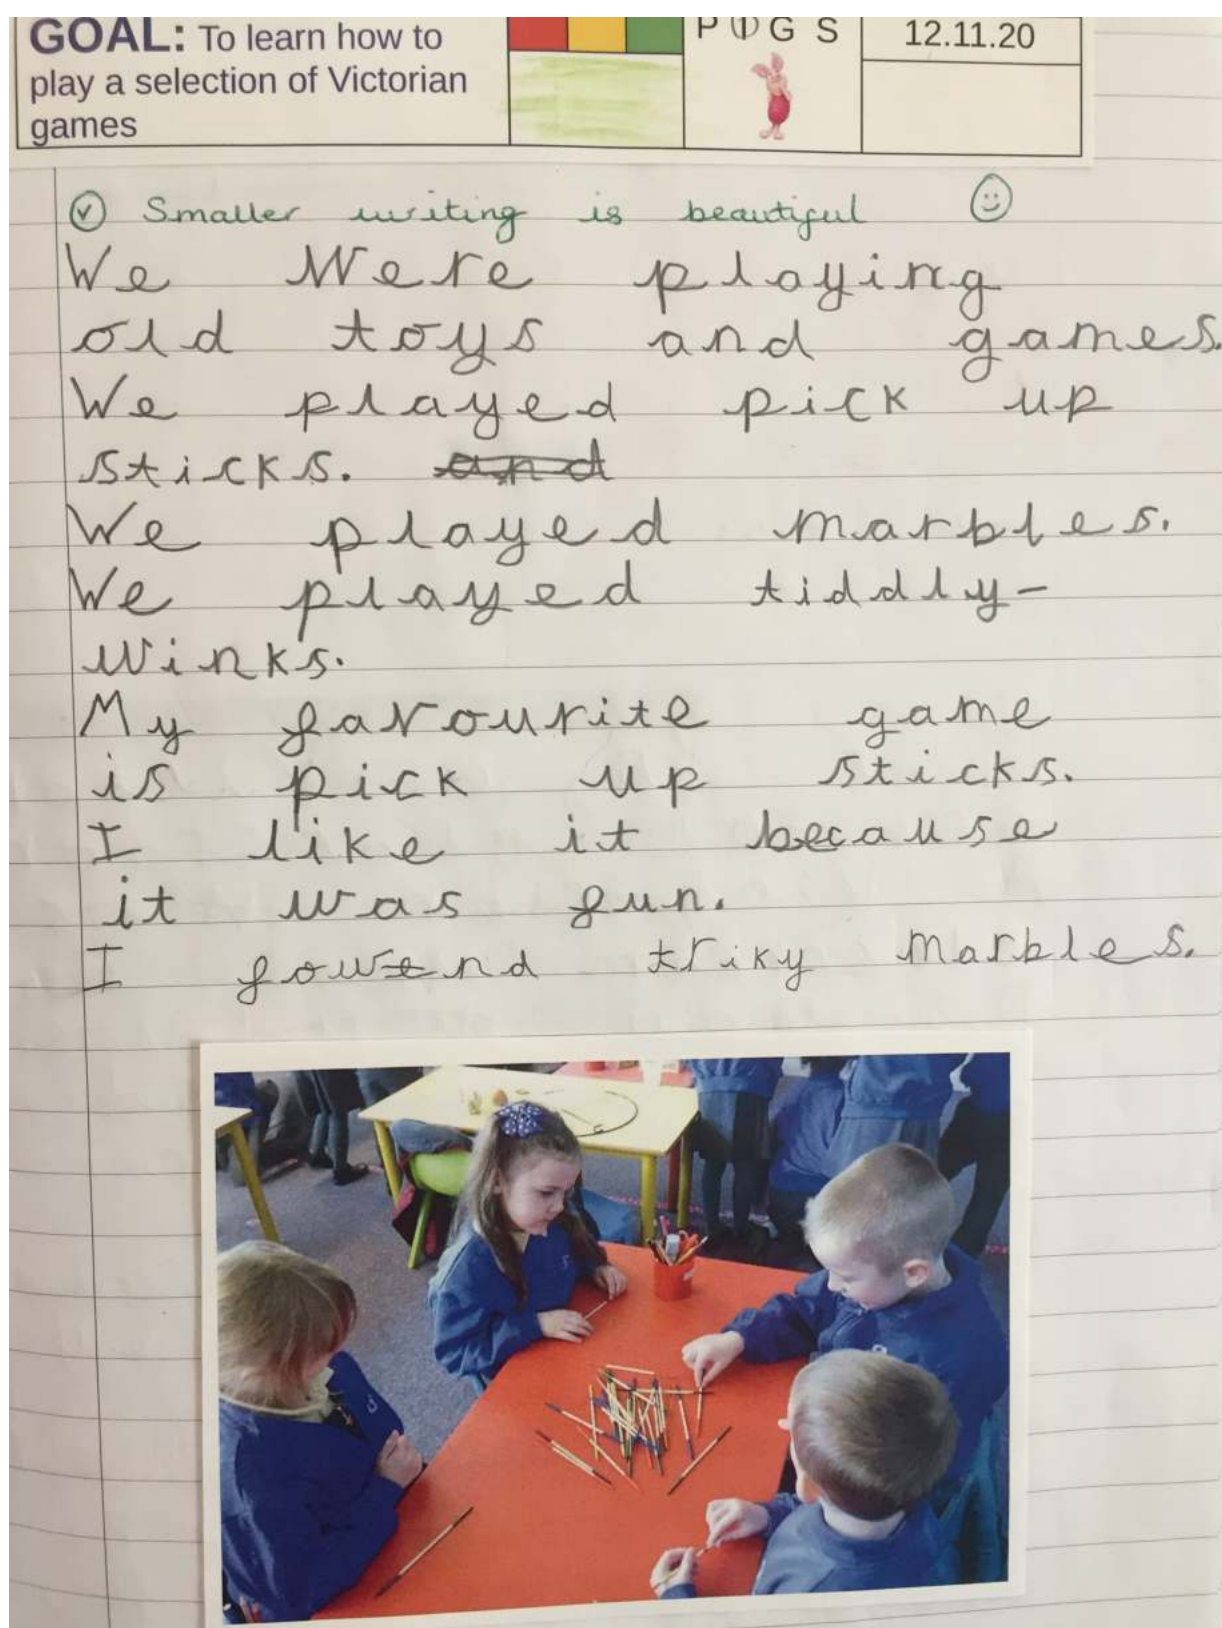 GOAL: To learn how to
play a selection of Victorian
games
P I G S
12.11.20
✓ Smaller writing is beautiful ☺
We were playing
old toys and games.
We played pick up
sticks. and
We played marbles.
We played tiddly-
winks.
My favourite game
is pick up sticks.
I like it because
it was fun.
I found triky marbles.